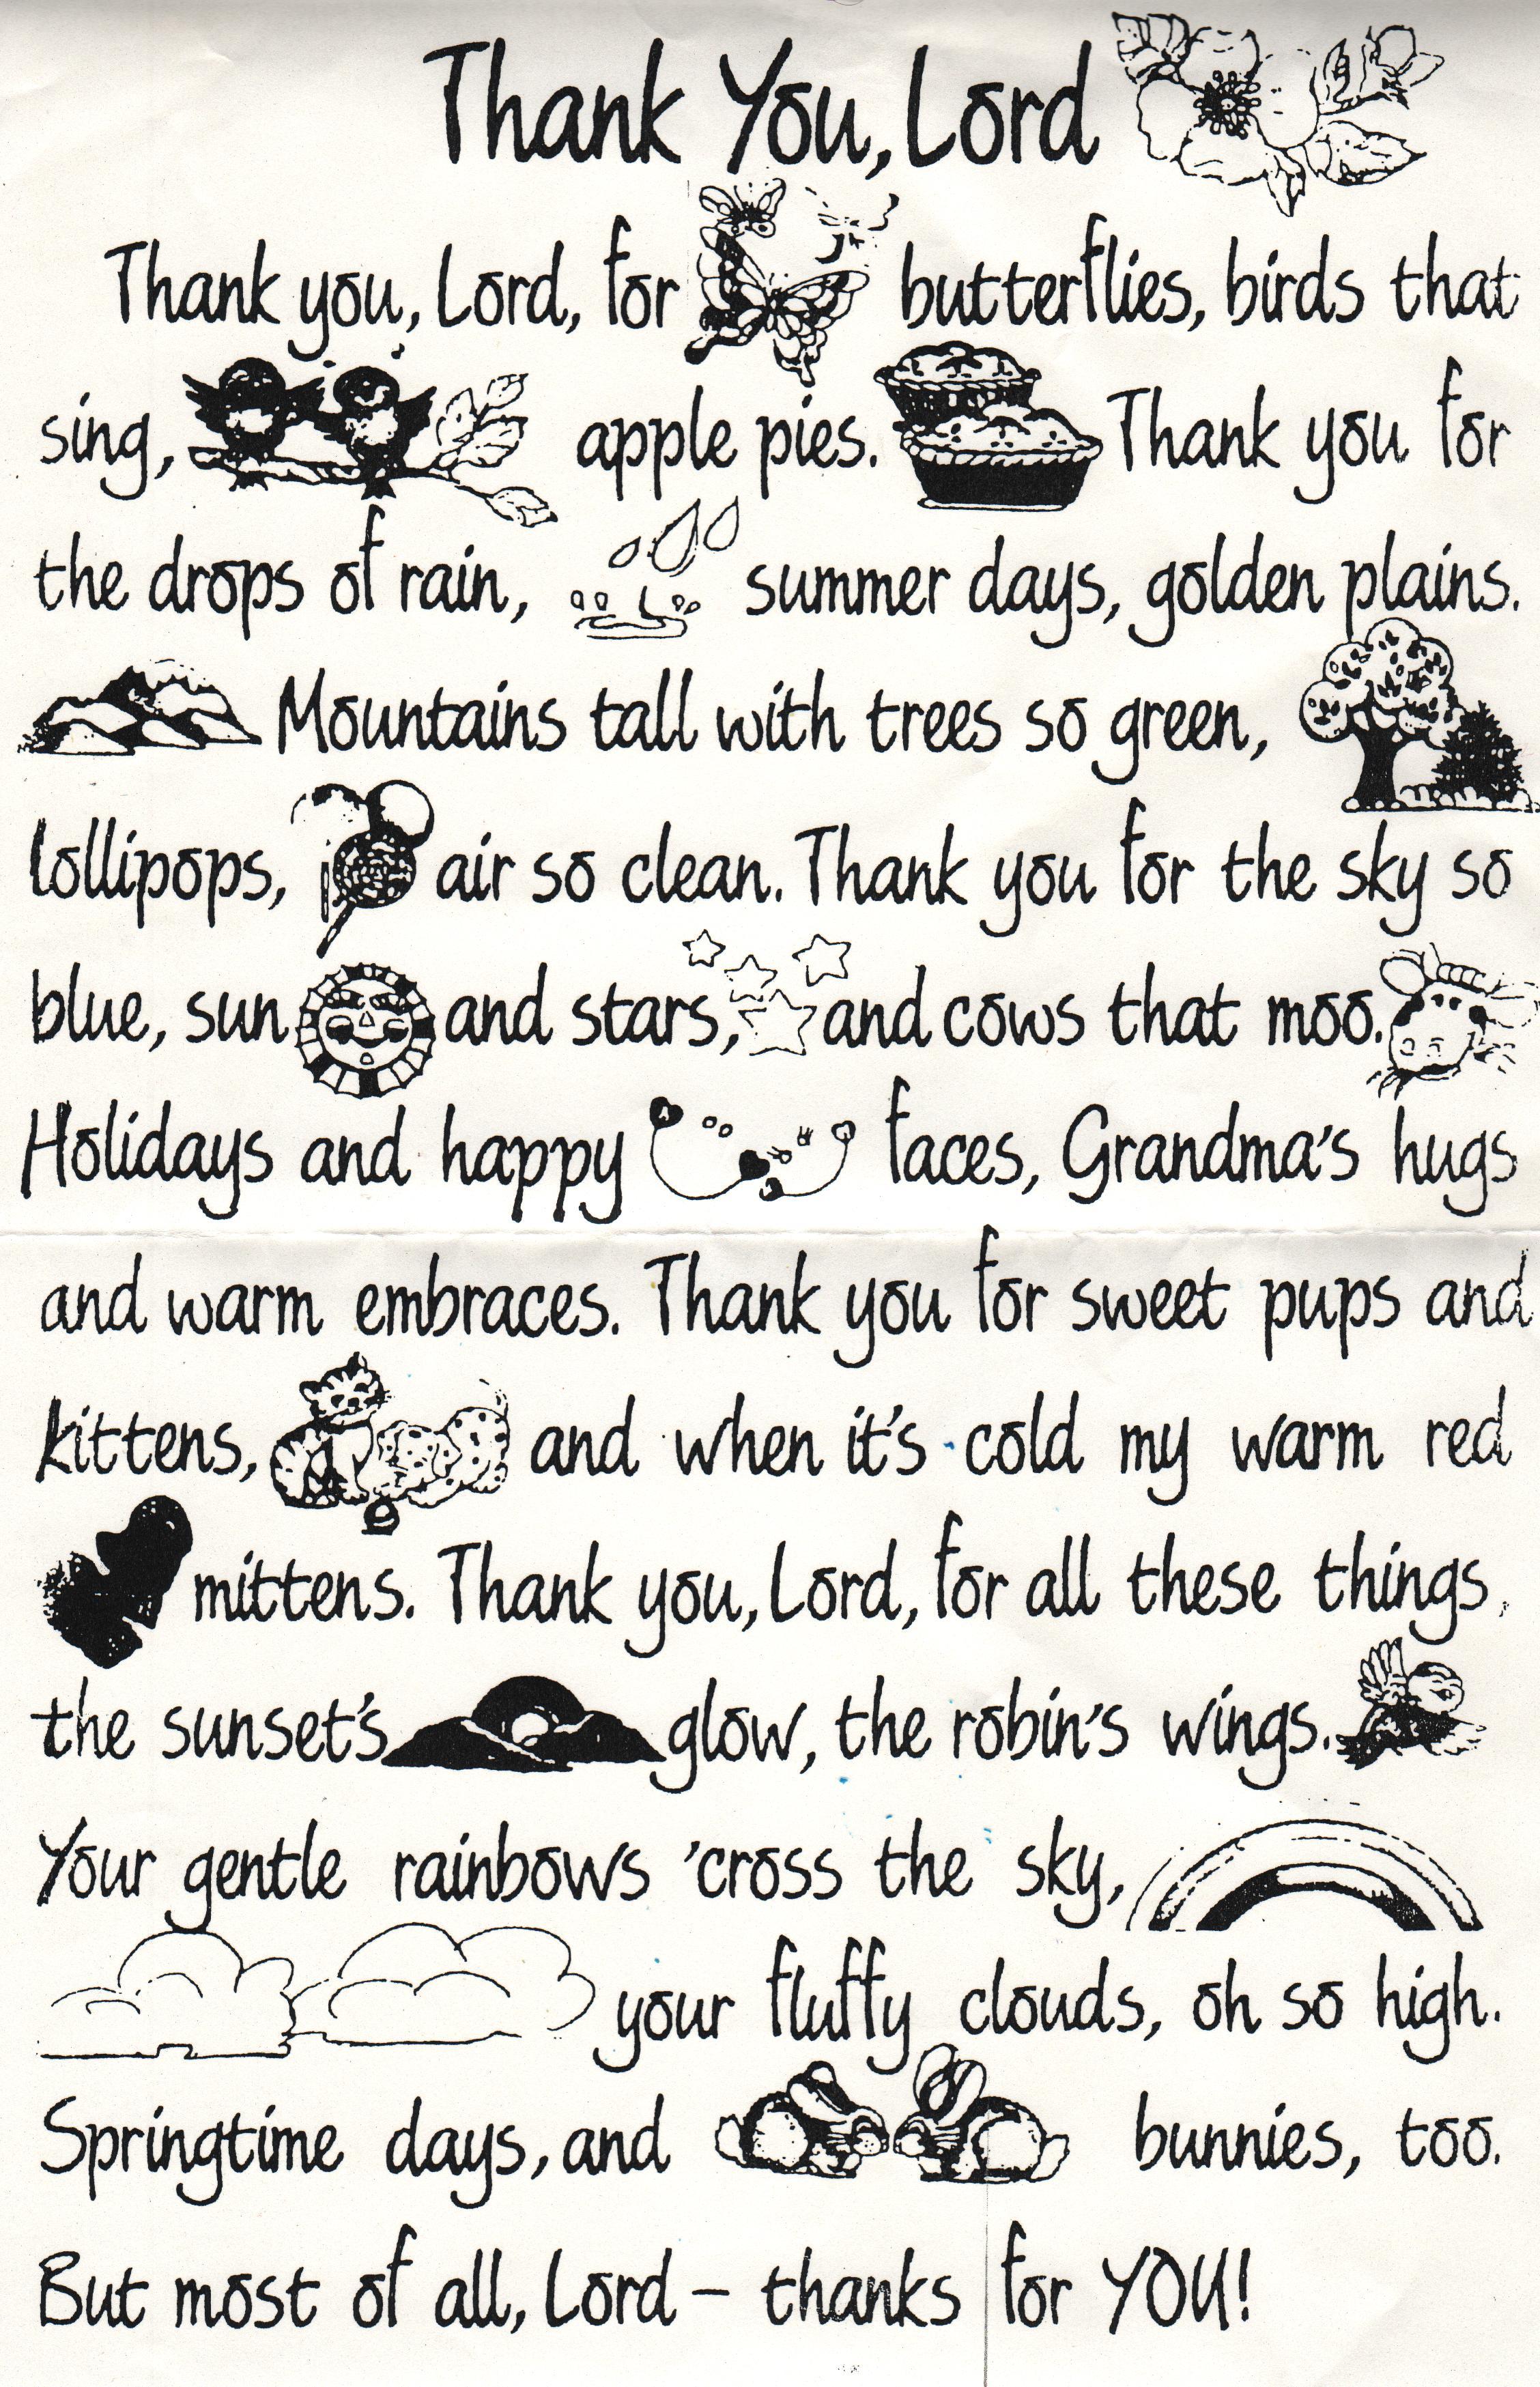 Thank You, Lord
Thank you, Lord, for butterflies, birds that
sing, apple pies. Thank you for
the drops of rain, summer days, golden plains.
Mountains tall with trees so green,
lollipops, air so clean. Thank you for the sky so
blue, sun and stars, and cows that moo.
Holidays and happy faces, Grandma's hugs
and warm embraces. Thank you for sweet pups and
kittens, and when it's cold my warm red
mittens. Thank you, Lord, for all these things,
the sunset's glow, the robin's wings.
Your gentle rainbows 'cross the sky,
your fluffy clouds, oh so high.
Springtime days, and bunnies, too.
But most of all, Lord – thanks for YOU!